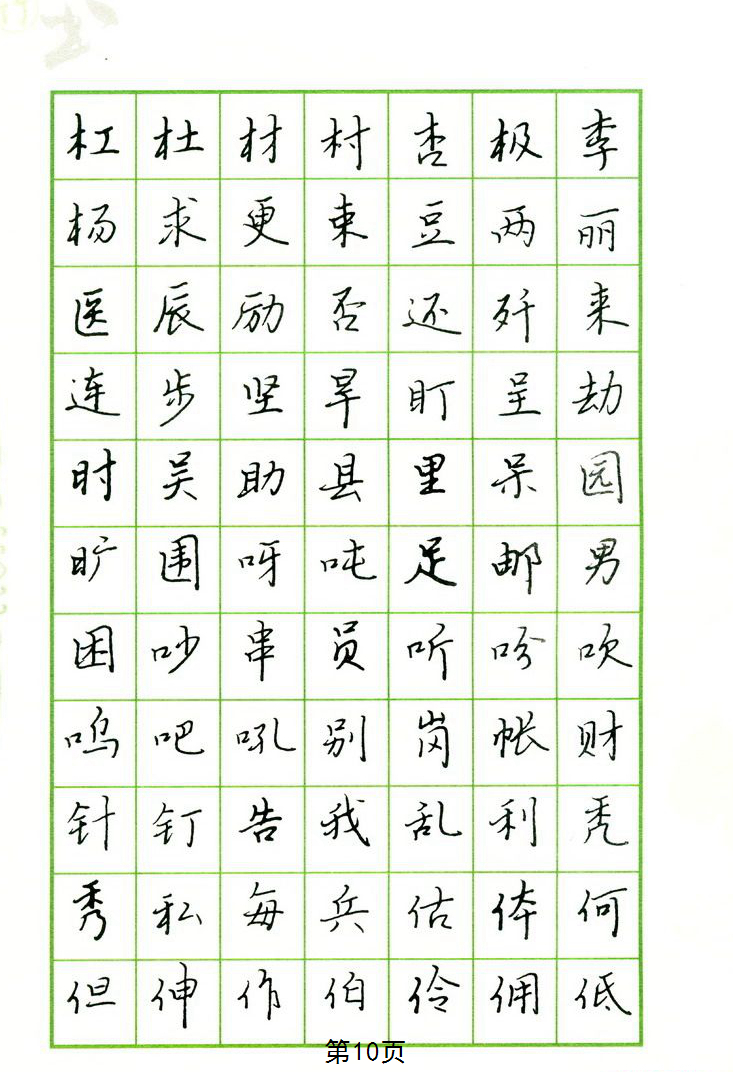 杠杜材村杏极李
杨求更束豆两丽
医辰励否还歼来
连步坚旱盯呈劫
时吴助县里呆园
旷围呀吨足邮男
困吵串员听吩吹
呜吧吼别岗帐财
针钉告我乱利秃
秀私每兵估体何
但伸作伯伶佣低
第10页